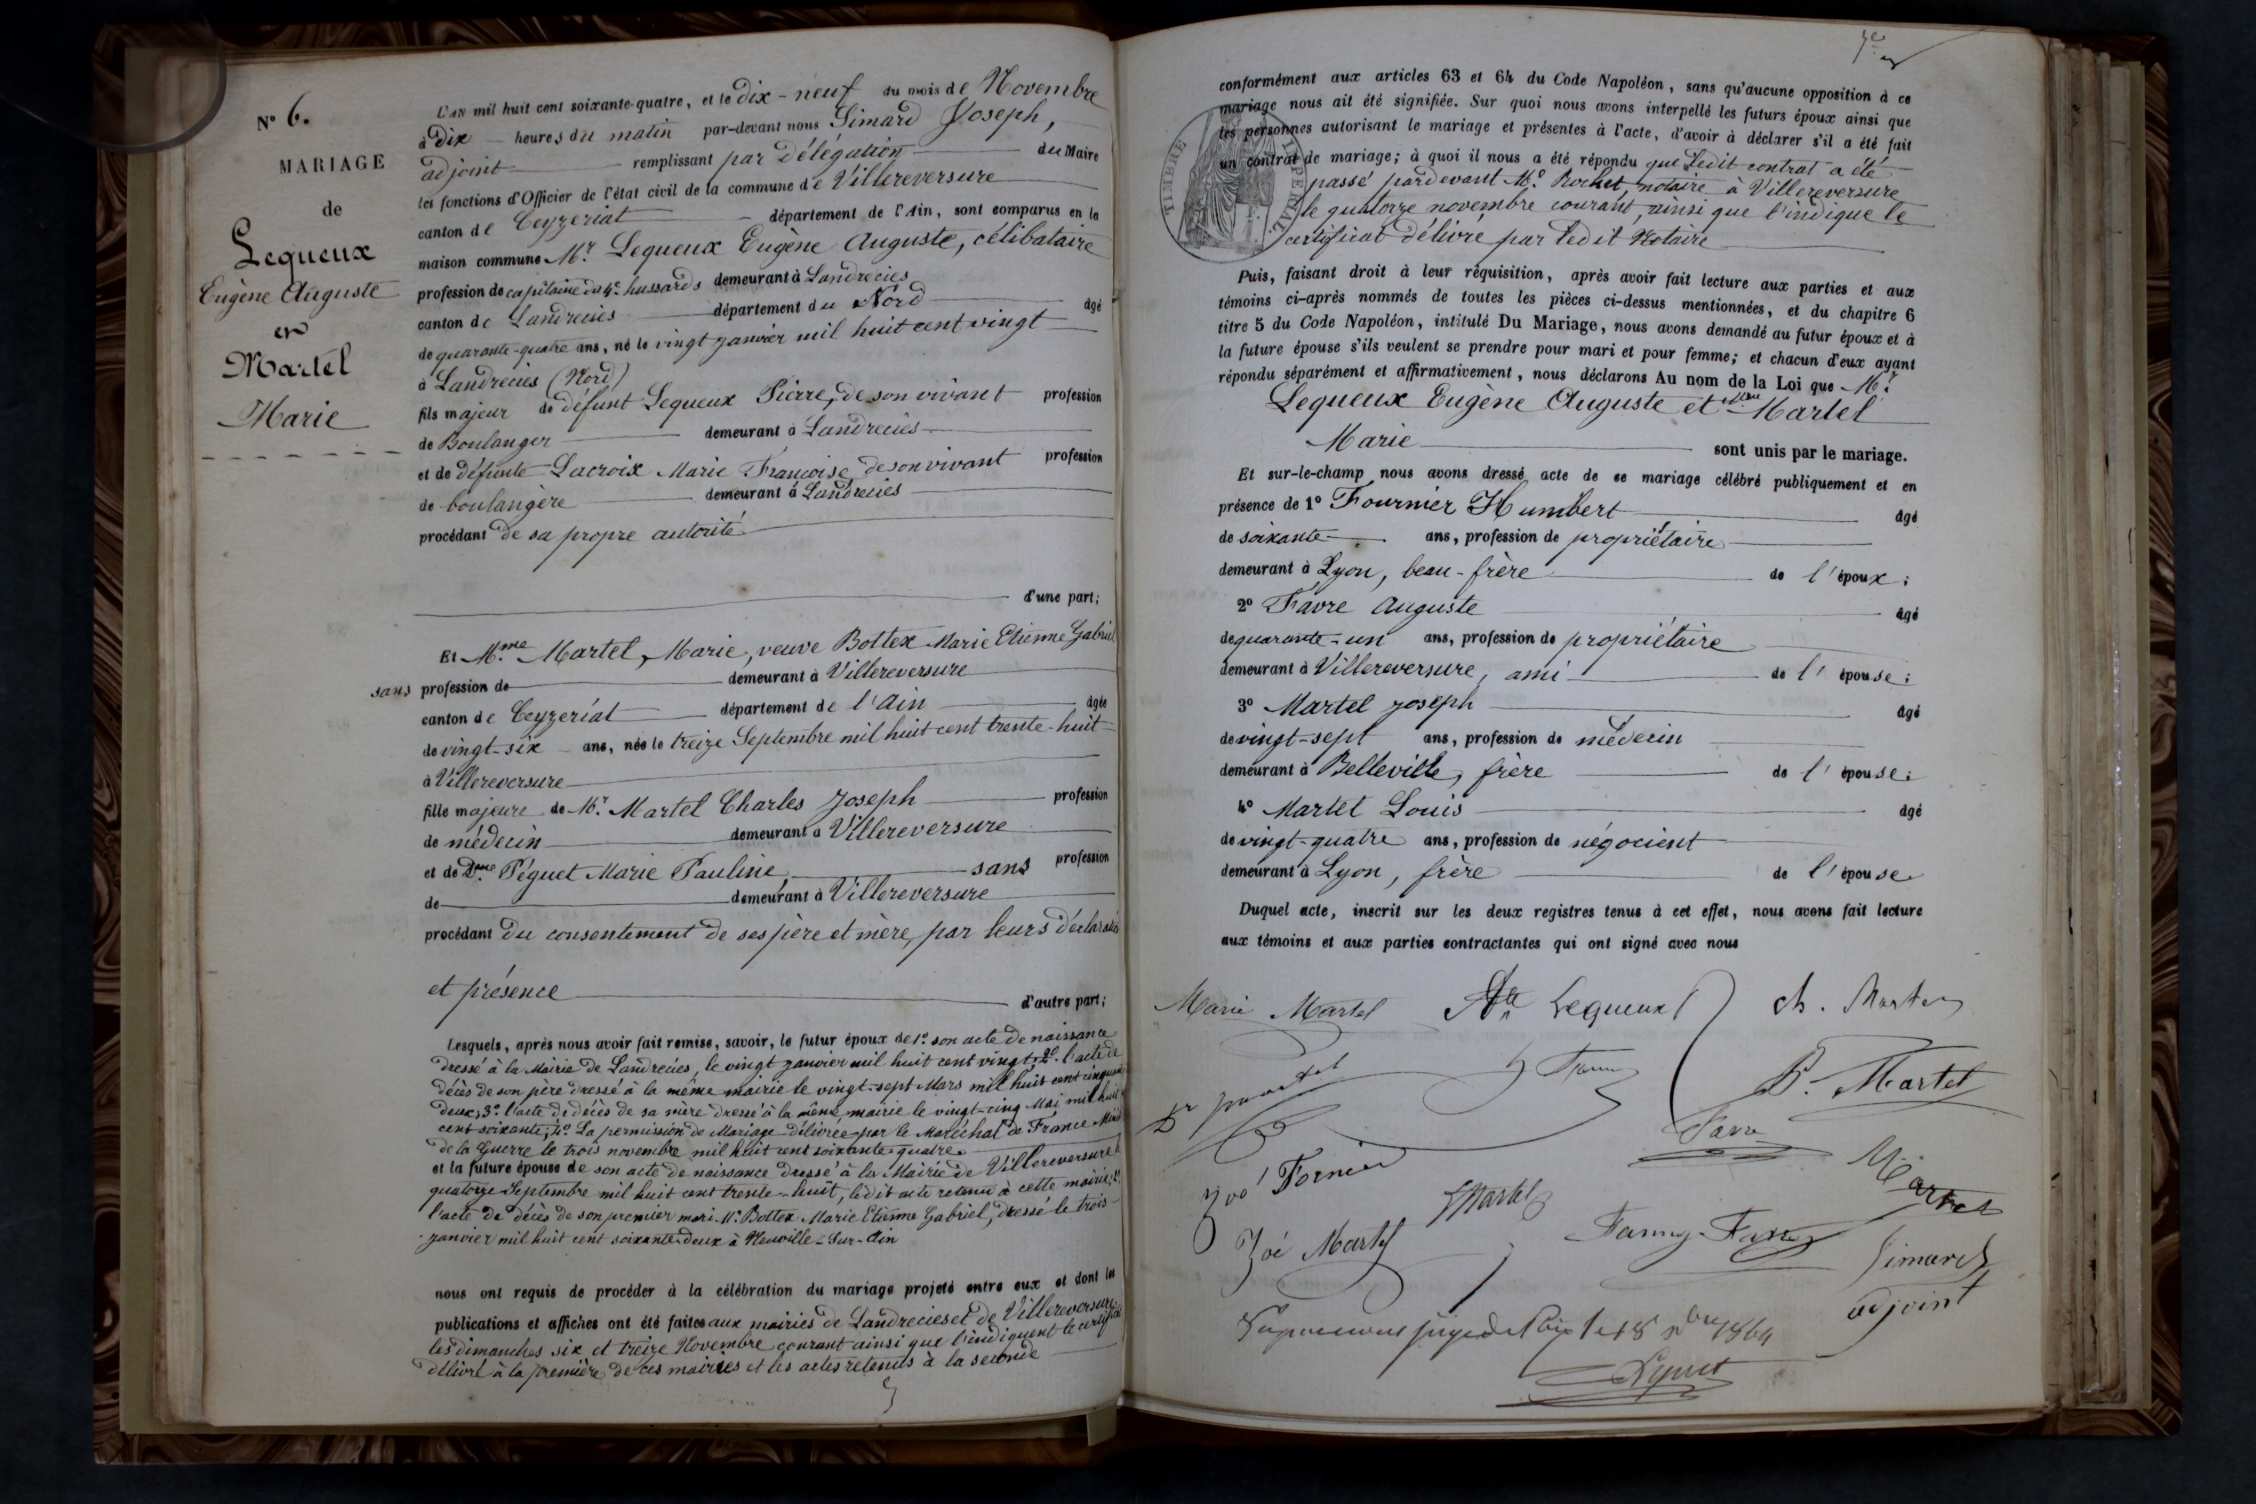 N° 6.
MARIAGE
de
Lequeux
Eugène Auguste
et
Martel
Marie
L'AN mil huit cent soixante-quatre, et le dix-neuf du mois de Novembre
à dix heures du matin par-devant nous Simard Joseph,
adjoint remplissant par délégation du Maire
les fonctions d'Officier de l'état civil de la commune de Villereversure
canton de Ceyzeriat département de l'Ain, sont comparus en la
maison commune Mr. Lequeux Eugène Auguste, célibataire
profession de capitaine du 4e hussards demeurant à Landrecies
canton de Landrecies département du Nord âgé
de quarante-quatre ans, né le vingt janvier mil huit cent vingt
à Landrecies (Nord)
fils majeur de défunt Lequeux Pierre, de son vivant profession
de Boulanger demeurant à Landrecies
et de défunte Lacroix Marie Françoise de son vivant profession
de boulangère demeurant à Landrecies
procédant de sa propre autorité
d'une part;
Et Mme Martel, Marie, veuve Bottex Marie Etienne Gabriel
sans profession de demeurant à Villereversure
canton de Ceyzeriat département de l'Ain âgée
de vingt-six ans, née le treize Septembre mil huit cent trente-huit
à Villereversure
fille majeure de Mr. Martel Charles Joseph profession
de médecin demeurant à Villereversure
et de Dme Péguet Marie Pauline, sans profession
de demeurant à Villereversure
procédant du consentement de ses père et mère, par leurs déclaration
et présence d'autre part;
Lesquels, après nous avoir fait remise, savoir, le futur époux de 1° son acte de naissance
dressé à la Mairie de Landrecies, le vingt janvier mil huit cent vingt; 2° l'acte de
décès de son père dressé à la même mairie le vingt-sept Mars mil huit cent cinquante
deux; 3° l'acte de décès de sa mère dressé à la même mairie le vingt-cinq Mai mil huit
cent soixante; 4° La permission de Mariage délivrée par le Maréchal de France
de la Guerre le trois novembre mil huit cent soixante quatre
et la future épouse de son acte de naissance dressé à la Mairie de Villereversure
quatorze Septembre mil huit cent trente-huit, ledit acte retenu à cette mairie; 2°
l'acte de décès de son premier mari Mr. Bottex Marie Etienne Gabriel, dressé le trois
janvier mil huit cent soixante-deux à Neuville-Sur-Ain
nous ont requis de procéder à la célébration du mariage projeté entre eux et dont les
publications et affiches ont été faites aux mairies de Landrecies et de Villereversure
les dimanches six et treize Novembre courant ainsi que l'indiquent le certificat
délivré à la première de ces mairies et les actes retenus à la seconde
conformément aux articles 63 et 64 du Code Napoléon, sans qu'aucune opposition à ce
mariage nous ait été signifiée. Sur quoi nous avons interpellé les futurs époux ainsi que
les personnes autorisant le mariage et présentes à l'acte, d'avoir à déclarer s'il a été fait
un contrat de mariage; à quoi il nous a été répondu que Ledit contrat a été
passé pardevant Me. Rochet, notaire à Villereversure
le quatorze novembre courant, ainsi que l'indique le
certificat délivré par ledit Notaire
TIMBRE IMPERIAL.
Puis, faisant droit à leur réquisition, après avoir fait lecture aux parties et aux
témoins ci-après nommés de toutes les pièces ci-dessus mentionnées, et du chapitre 6
titre 5 du Code Napoléon, intitulé Du Mariage, nous avons demandé au futur époux et à
la future épouse s'ils veulent se prendre pour mari et pour femme; et chacun d'eux ayant
répondu séparément et affirmativement, nous déclarons Au nom de la Loi que Mr.
Lequeux Eugène Auguste et Mme Martel
Marie sont unis par le mariage.
Et sur-le-champ nous avons dressé acte de ce mariage célébré publiquement et en
présence de 1° Fournier Humbert âgé
de soixante ans, profession de propriétaire
demeurant à Lyon, beau-frère de l'époux;
2° Favre Auguste âgé
de quarante-un ans, profession de propriétaire
demeurant à Villereversure, ami de l'épouse;
3° Martel Joseph âgé
de vingt-sept ans, profession de médecin
demeurant à Belleville, frère de l'épouse;
4° Martel Louis âgé
de vingt-quatre ans, profession de négocient
demeurant à Lyon, frère de l'épouse
Duquel acte, inscrit sur les deux registres tenus à cet effet, nous avons fait lecture
aux témoins et aux parties contractantes qui ont signé avec nous
Marie Martel Lequeux ch. Martel
Dr J martel P. Martel
Favre
Martel
Zoé Martel Fanny Favre
Simard
adjoint